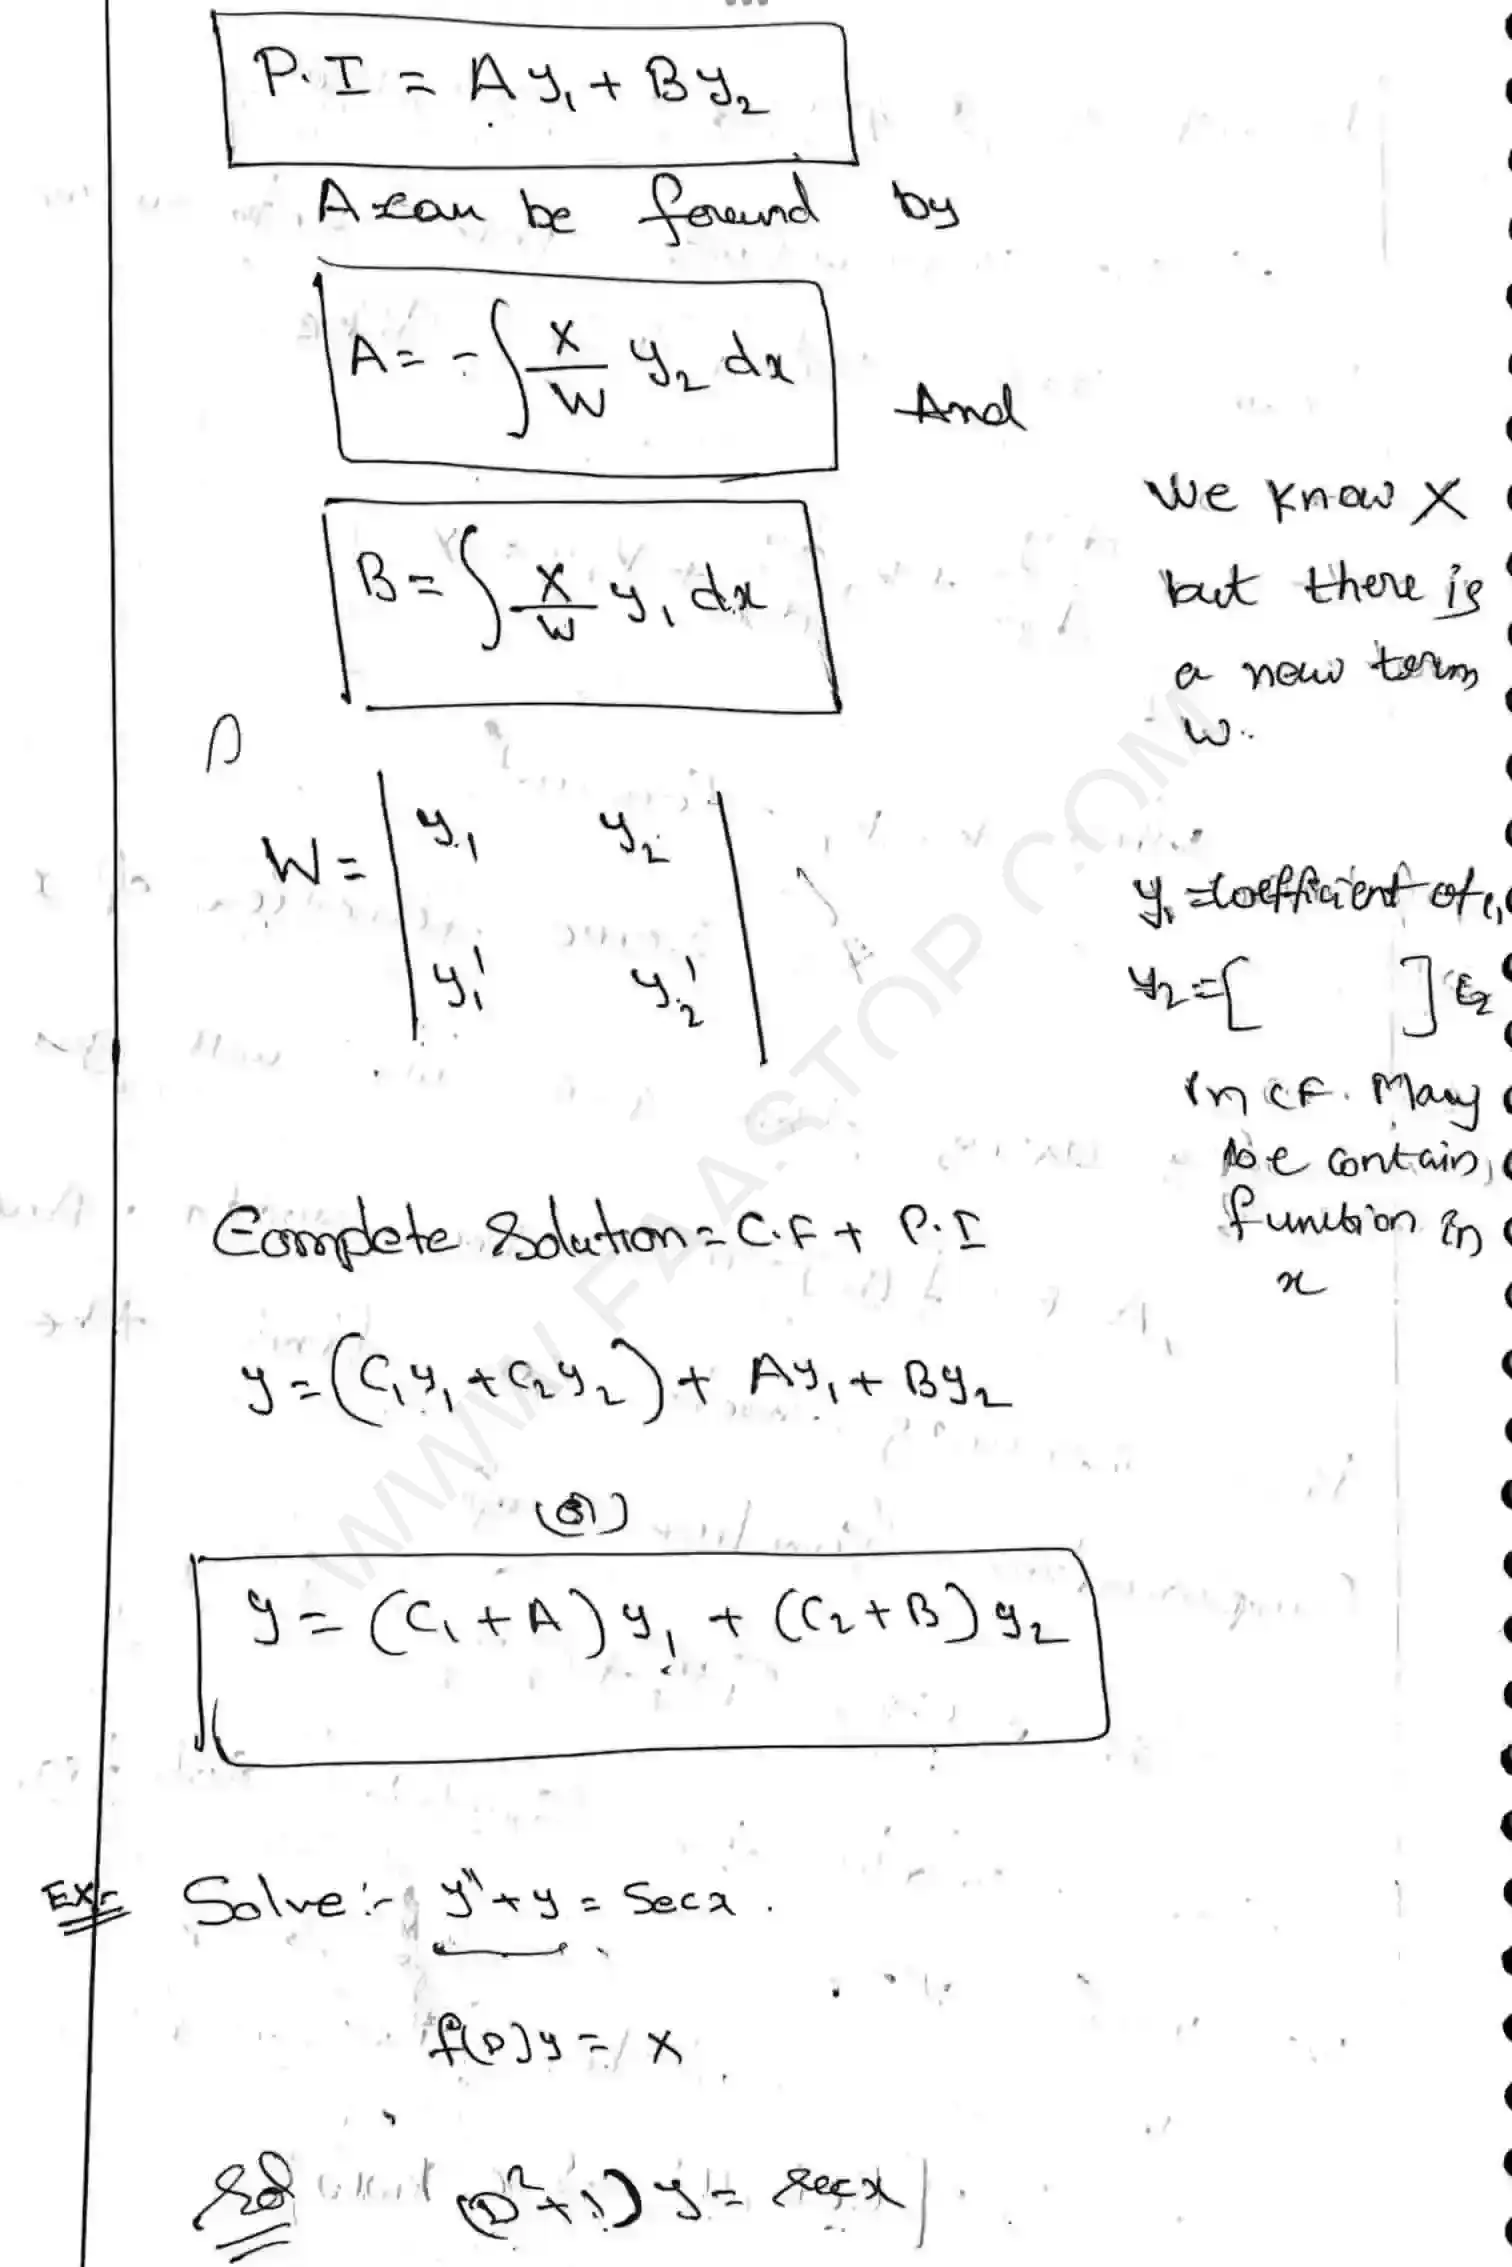 P.I = Ay₁ + By₂
A can be found by
A = -∫ X/W y₂ dx And
B = ∫ X/W y₁ dx
We know X
but there is
a new term
W.
W = | y₁ y₂ |
| y₁' y₂' |
y₁ = coefficient of c₁
y₂ = [ ] c₂
in CF. May
be contain
function in
x
Complete Solution = C.F + P.I
y = (C₁y₁ + C₂y₂) + Ay₁ + By₂
(or)
y = (C₁ + A) y₁ + (C₂ + B) y₂
Ex:- Solve :- y'' + y = Sec x.
f(D)y = X
Sol (D² + 1) y = sec x
WWW.FAASTOP.COM